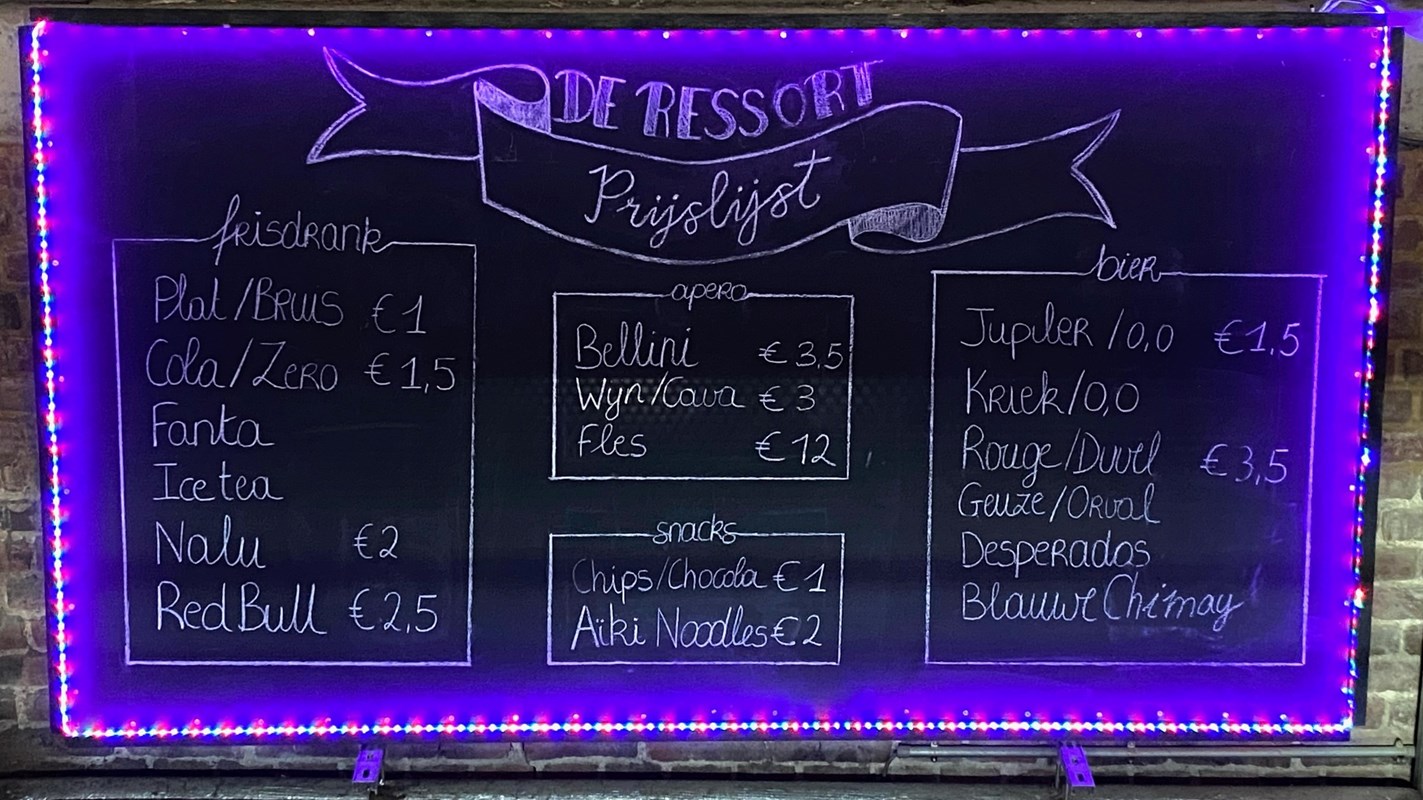 DE RESSORT
Prijslijst
frisdrank
Plat/Bruis €1
Cola/Zero €1,5
Fanta
Ice tea
Nalu €2
Red Bull €2,5
apero
Bellini €3,5
Wyn/Cava €3
Fles €12
snacks
Chips/Chocola €1
Aïki Noodles €2
bier
Jupiler /0,0 €1,5
Kriek/0,0
Rouge/Duvel €3,5
Geuze/Orval
Desperados
Blauwe Chimay